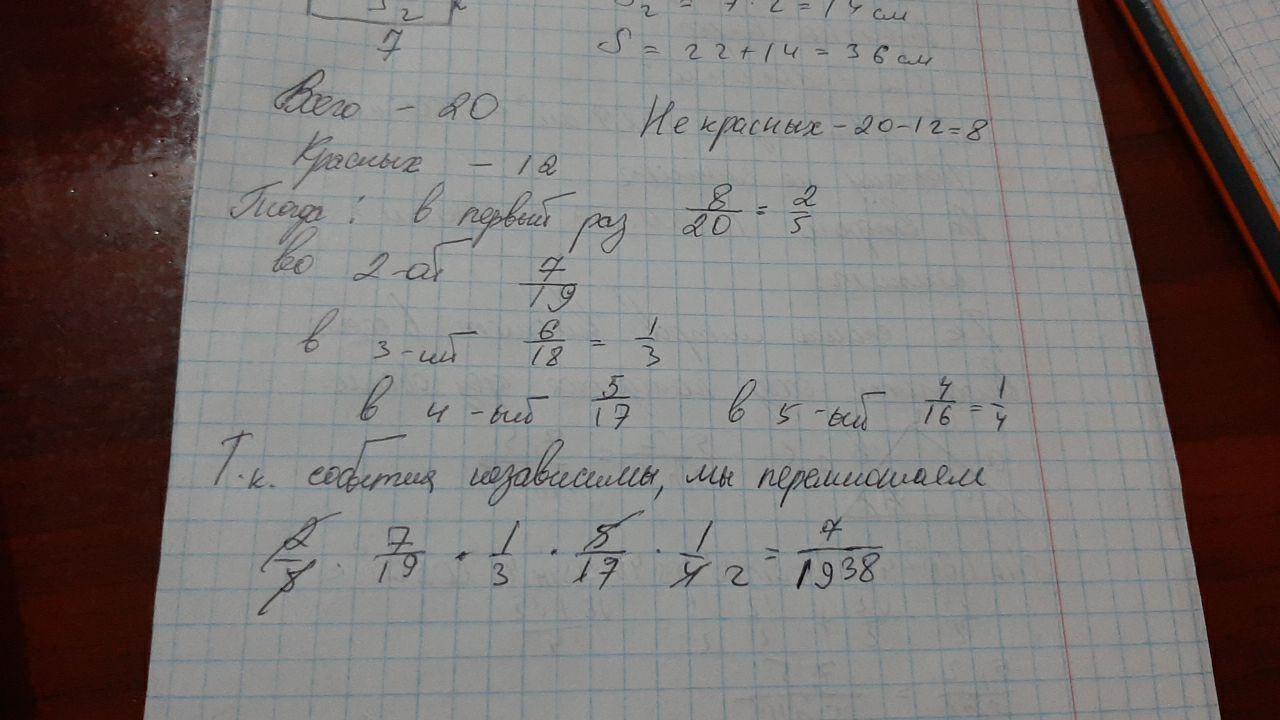 S₂ 7
S₂ = 7 · 2 = 14 см
S = 22 + 14 = 36 см
Всего – 20
Не красных – 20 – 12 = 8
Красных – 12
Тогда: в первый раз 8/20 = 2/5
во 2-ой 7/19
в 3-ий 6/18 = 1/3
в 4-ый 5/17 в 5-ый 4/16 = 1/4
Т.к. события независимы, мы перемножаем
2/5 · 7/19 · 1/3 · 5/17 · 1/4 2 = 7/1938